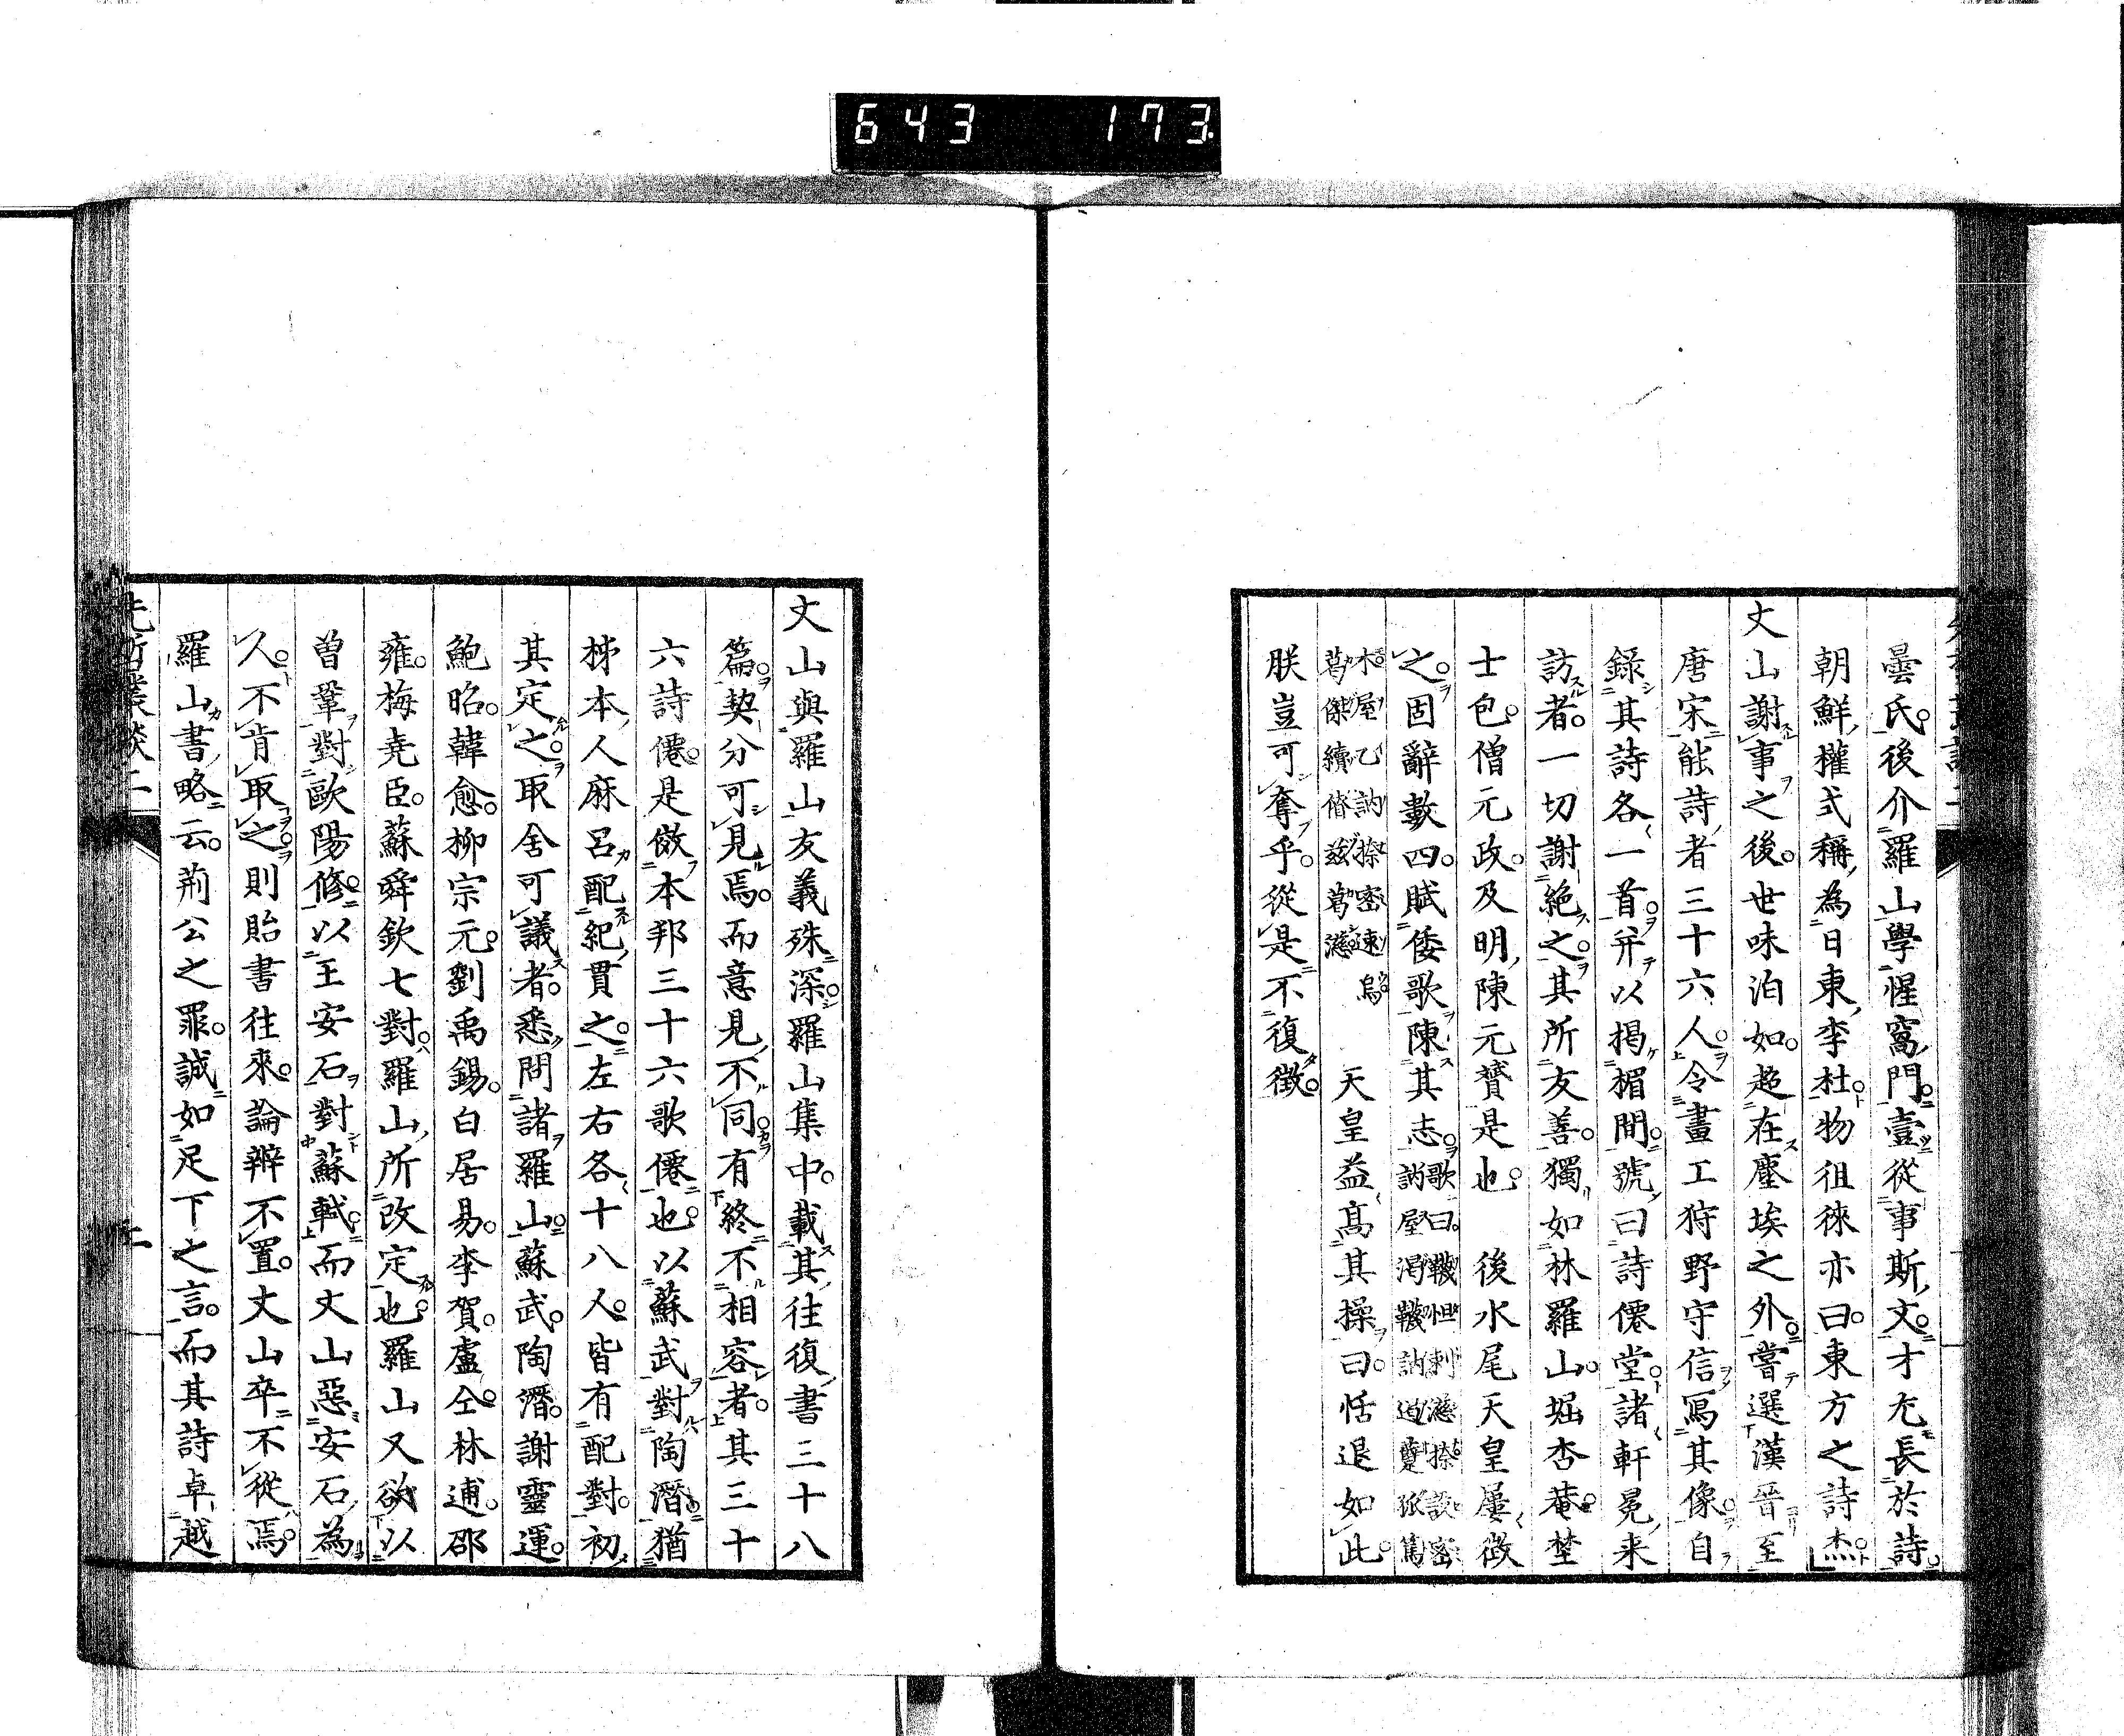 643 173
曇氏後介羅山學惺窩門壹從事斯文才尤長於詩
朝鮮權式稱為日東李杜物徂徠亦曰東方之詩杰
丈山謝事之後世味泊如超在塵埃之外嘗選漢晉至
唐宋能詩者三十六人令畫工狩野守信寫其像自
錄其詩各一首并以掲楣間號曰詩僊堂諸軒冕来
訪者一切謝絶之其所友善獨如林羅山堀杏菴埜
士包僧元政及明陳元贇是也 後水尾天皇屢徴
之固辭數四賦倭歌陳其志歌曰
天皇益髙其操曰恬退如此
朕豈可奪乎從是不復徴
丈山與羅山友義殊深羅山集中載其往復書三十八
篇契分可見焉而意見不同有終不相容者其三十
六詩僊是倣本邦三十六歌僊也以蘇武對陶潛猶
柹本人麻呂配紀貫之左右各十八人皆有配對初
其定之取舍可議者悉問諸羅山蘇武陶潛謝靈運
鮑昭韓愈柳宗元劉禹錫白居易李賀盧仝林逋邵
雍梅堯臣蘇舜欽七對羅山所改定也羅山又欲以
曽鞏對歐陽修以王安石對蘇軾而丈山惡安石為
人不肯取之則貽書往來論辨不置丈山卒不從焉
羅山書略云荊公之罪誠如足下之言而其詩卓越